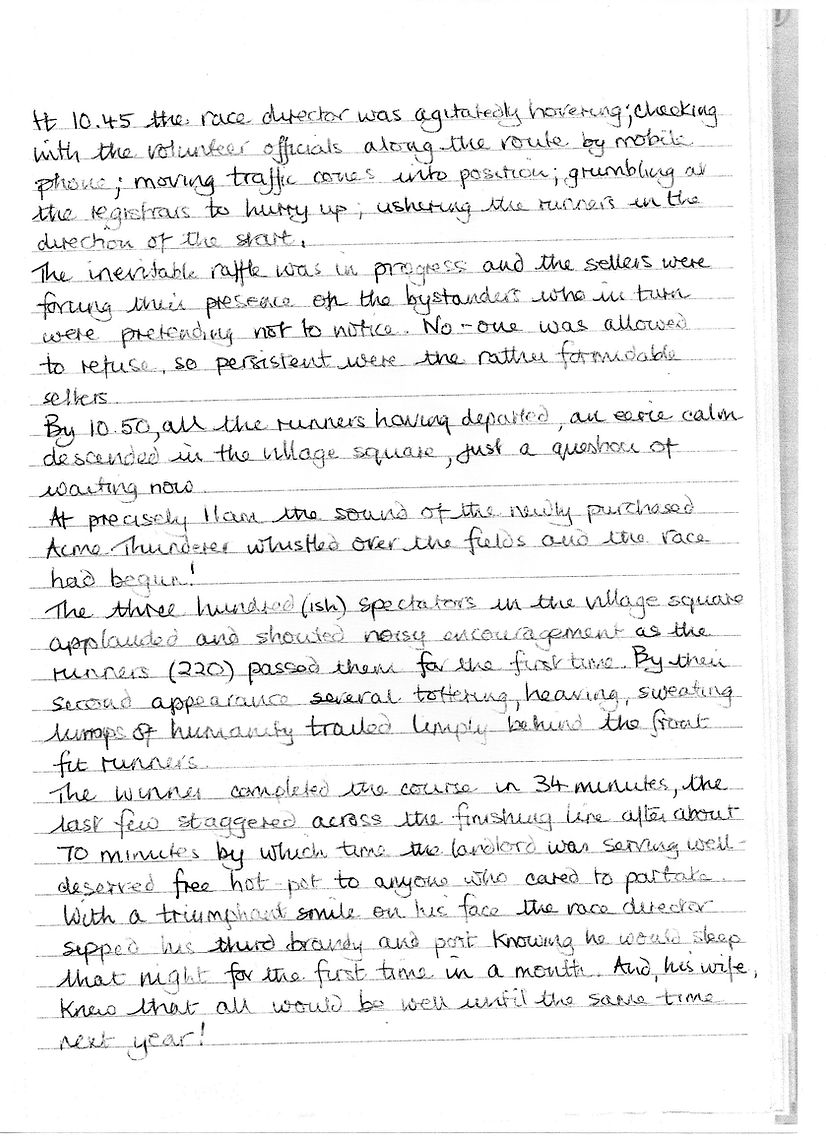 At 10.45 the race director was agitatedly hovering; checking
with the volunteer officials along the route by mobile
phone; moving traffic cones into position; grumbling at
the registrars to hurry up; ushering the runners in the
direction of the start.
The inevitable raffle was in progress and the sellers were
forcing their presence on the bystanders who in turn
were pretending not to notice. No-one was allowed
to refuse, so persistent were the rather formidable
sellers.
By 10.50, all the runners having departed, an eerie calm
descended in the village square, just a question of
waiting now.
At precisely 11am the sound of the newly purchased
Acme Thunderer whistled over the fields and the race
had begun!
The three hundred (ish) spectators in the village square
applauded and shouted noisy encouragement as the
runners (220) passed them for the first time. By their
second appearance several tottering, heaving, sweating
lumps of humanity trailed limply behind the front
fit runners.
The winner completed the course in 34 minutes, the
last few staggered across the finishing line after about
70 minutes by which time the landlord was serving well-
deserved free hot-pot to anyone who cared to partake.
With a triumphant smile on his face the race director
sipped his third brandy and port knowing he would sleep
that night for the first time in a month. And, his wife,
knew that all would be well until the same time
next year!